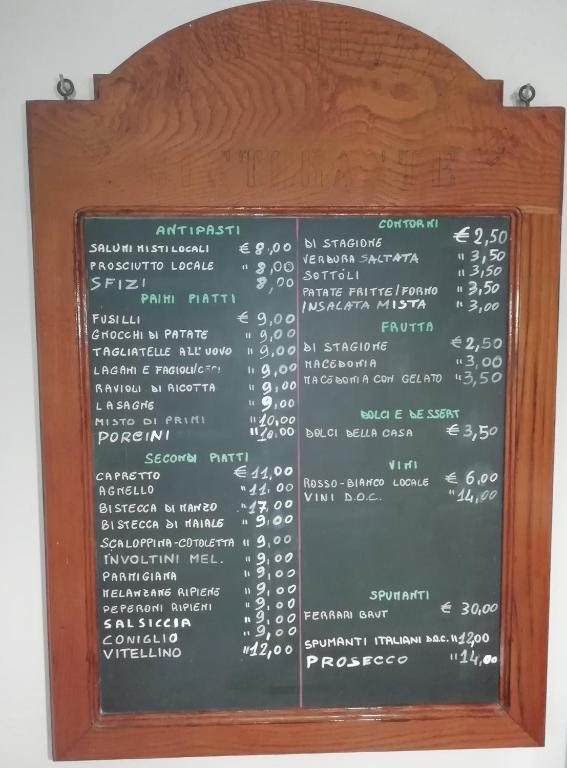 RISTORANTE
ANTIPASTI
SALUMI MISTI LOCALI € 8,00
PROSCIUTTO LOCALE " 8,00
SFIZI 8,00
PRIMI PIATTI
FUSILLI € 9,00
GNOCCHI DI PATATE " 9,00
TAGLIATELLE ALL'UOVO " 9,00
LAGANI E FAGIOLI/CECI " 9,00
RAVIOLI DI RICOTTA " 9,00
LASAGNE " 9,00
MISTO DI PRIMI " 10,00
PORCINI " 10,00
SECONDI PIATTI
CAPRETTO € 11,00
AGNELLO " 11,00
BISTECCA DI MANZO " 17,00
BISTECCA DI MAIALE " 9,00
SCALOPPINA-COTOLETTA " 9,00
INVOLTINI MEL. " 9,00
PARMIGIANA " 9,00
MELANZANE RIPIENE " 9,00
PEPERONI RIPIENI " 9,00
SALSICCIA " 9,00
CONIGLIO " 9,00
VITELLINO " 12,00
CONTORNI
DI STAGIONE € 2,50
VERDURA SALTATA " 3,50
SOTTÒLI " 3,50
PATATE FRITTE/FORNO " 3,50
INSALATA MISTA " 3,00
FRUTTA
DI STAGIONE € 2,50
MACEDONIA " 3,00
MACEDONIA CON GELATO " 3,50
DOLCI E DESSERT
DOLCI DELLA CASA € 3,50
VINI
ROSSO-BIANCO LOCALE € 6,00
VINI D.O.C. " 14,00
SPUMANTI
FERRARI BRUT € 30,00
SPUMANTI ITALIANI D.O.C. " 12,00
PROSECCO " 14,00